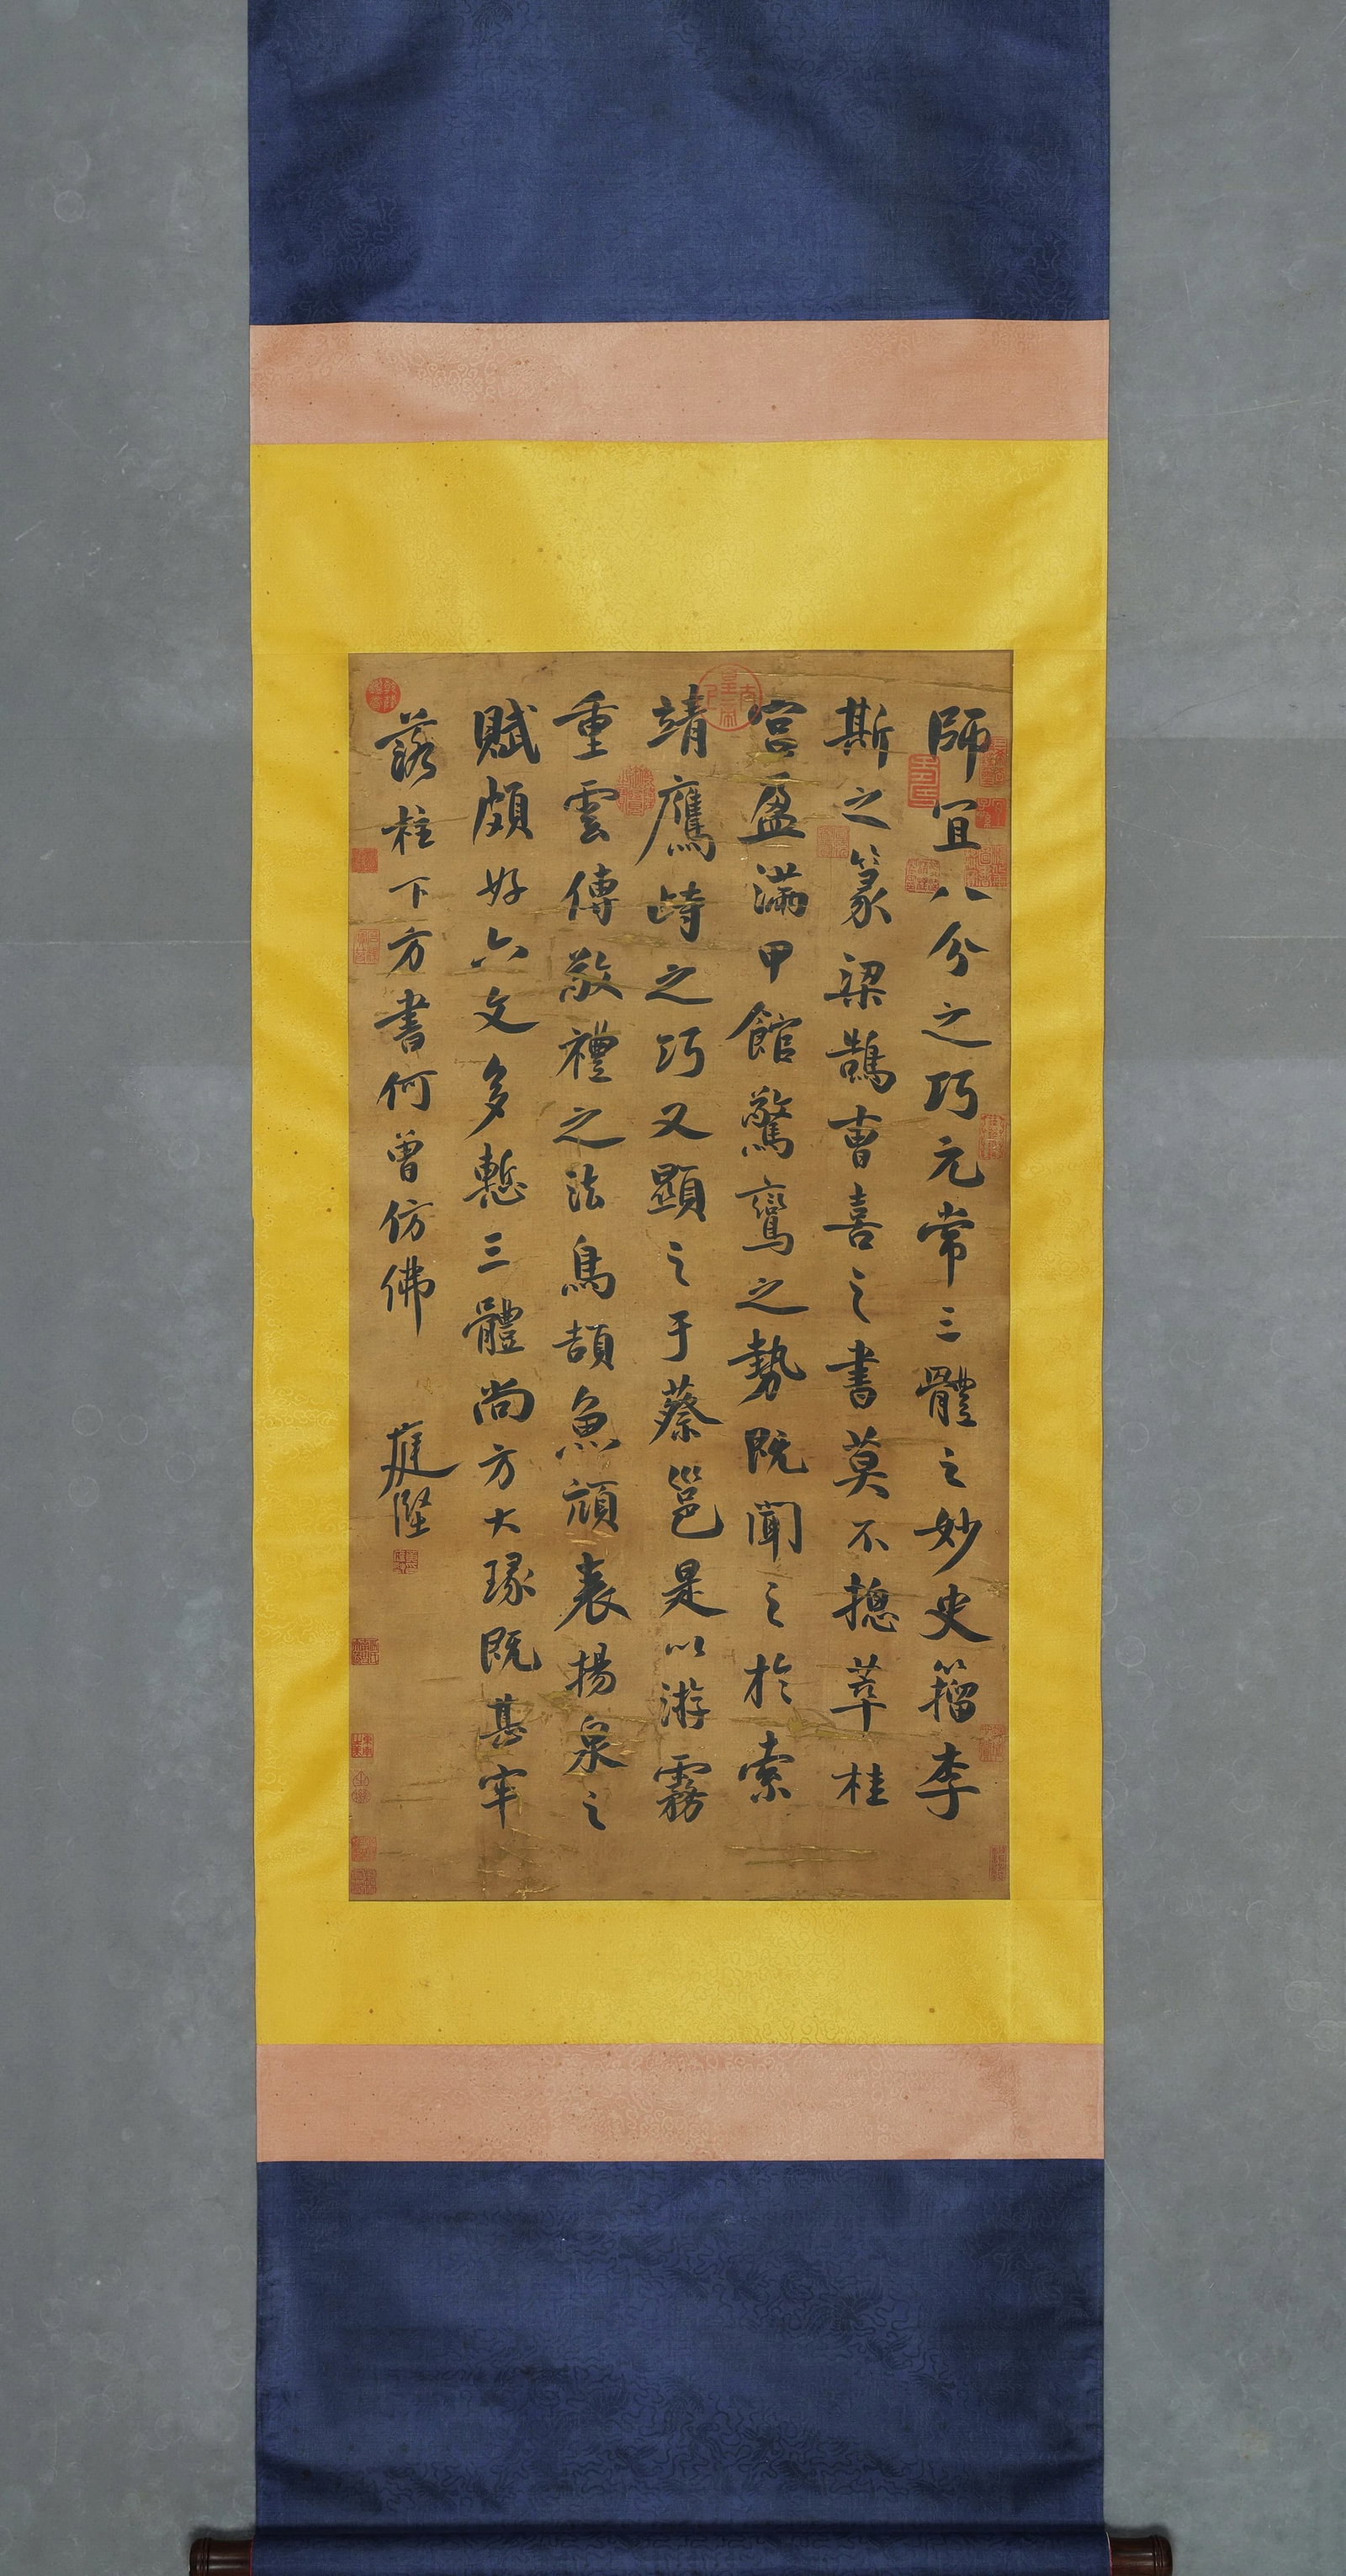 師宜八分之巧元常三體之妙史籀李
斯之篆梁鵠曺喜之書莫不摠萃桂
宮盈滿甲館驚鸞之勢既聞之於索
靖鷹峙之巧又顯之于蔡邕是以游霧
重雲傳敬禮之法鳥頡魚頏表揚泉之
賦頗好六文多慙三體尚方大瑑既甚牢
落柱下方書何曾仿佛
庭堅